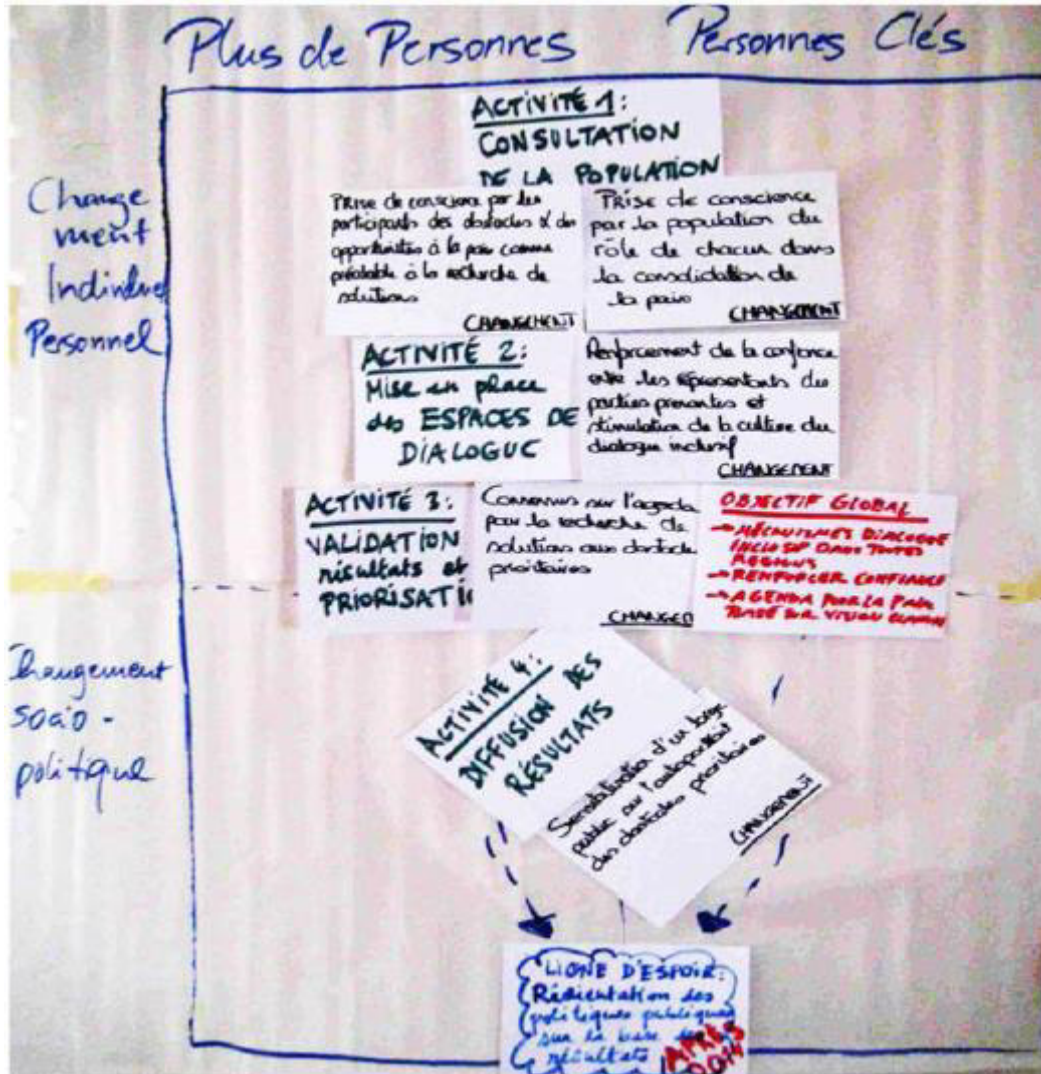 Plus de Personnes
Personnes Clés
Change
ment
Individuel
Personnel
ACTIVITÉ 1:
CONSULTATION
DE LA POPULATION
Prise de conscience par les
participants des obstacles & des
opportunités à la paix comme
préalable à la recherche de
solutions
CHANGEMENT
Prise de conscience
par la population du
rôle de chacun dans
la consolidation de
la paix
CHANGEMENT
ACTIVITÉ 2:
Mise en place
des ESPACES DE
DIALOGUE
Renforcement de la confiance
entre les représentants des
parties prenantes et
stimulation de la culture du
dialogue inclusif
CHANGEMENT
ACTIVITÉ 3:
VALIDATION
résultats et
PRIORISATI
Consensus sur l'agenda
pour la recherche de
solutions aux obstacle
prioritaires
CHANGE
OBJECTIF GLOBAL
→ MÉCANISMES DIALOGUE
INCLUSIF DANS TOUTES
REGIONS
→ RENFORCER CONFIANCE
→ AGENDA POUR LA PAIX
BASÉ SUR VISION COMMUNE
Changement
socio-
politique
ACTIVITÉ 4:
DIFFUSION DES
RÉSULTATS
Sensibilisation d'un large
public sur
des obstacles prioritaires
CHANGEMENT
LIGNE D'ESPOIR:
Réorientation des
politiques publiques
sur la base des
résultats
APRÈS